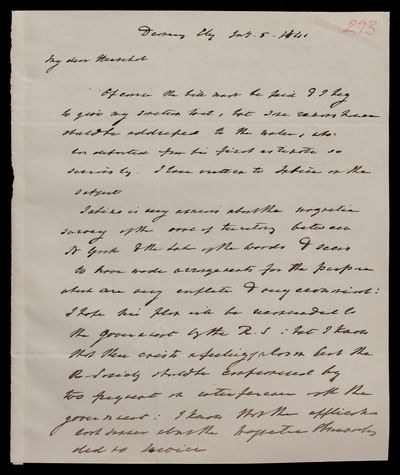 293
Deanery Ely July 5. 1841
My dear Herschel
Of course the bill must be paid & I beg
to give my sanction to it, but some remonstrance
should be addressed to the maker, who
has departed from his first estimate so
seriously. I have written to Sabine on the
subject
Sabine is very anxious about the magnetic
survey of the zone of territory between
N York & the Lake of the Woods & seems
to have made arrangements for the purpose
which are very complete & very economical:
I hope his plan will be recommended to
the Government by the R. S: but I know
that there exists a feeling
the R. Society should be compromised by
too frequent an interference with the
government: I know that the application
last summer about the Magnetic
did so